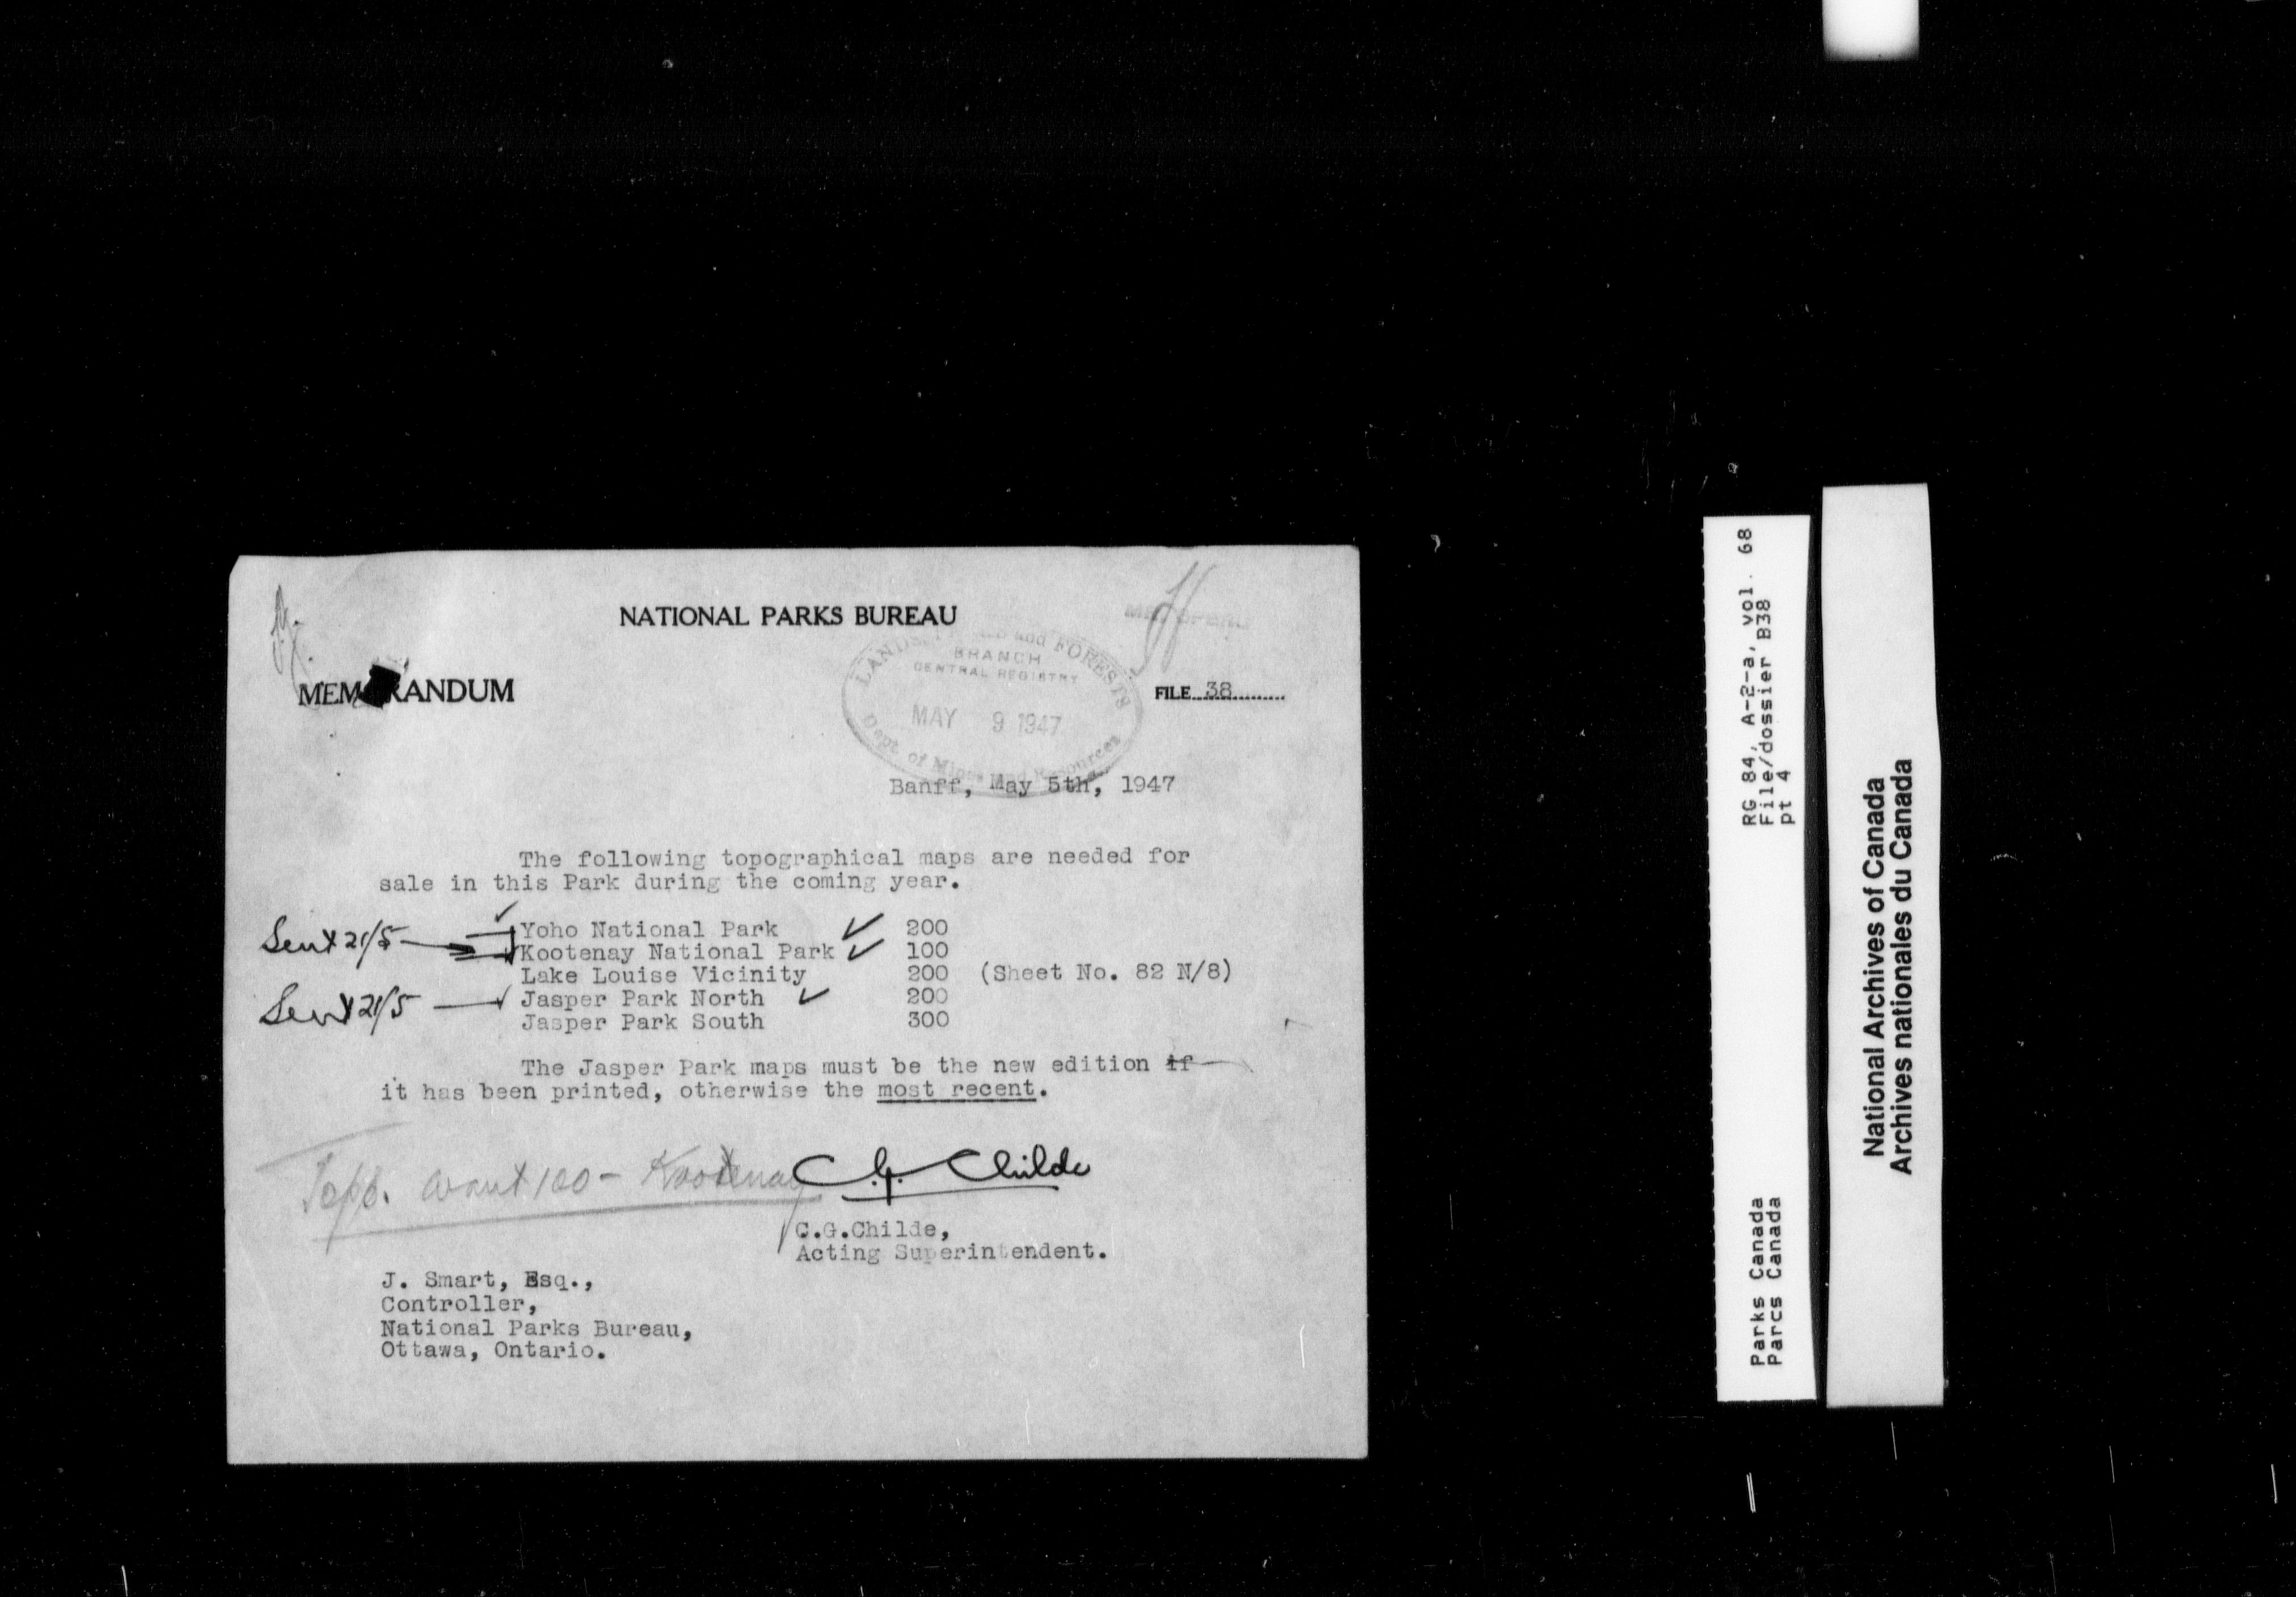 NATIONAL PARKS BUREAU
LANDS, and FORESTS
BRANCH
CENTRAL REGISTRY
MEMORANDUM
FILE 38
MAY 9 1947
Dept of Mines and Resources
Banff, May 5th, 1947
The following topographical maps are needed for
sale in this Park during the coming year.
Sent 21/5 Yoho National Park 200
Kootenay National Park 100
Lake Louise Vicinity 200 (Sheet No. 82 N/8)
Sent 21/5 Jasper Park North 200
Jasper Park South 300
The Jasper Park maps must be the new edition if
it has been printed, otherwise the most recent.
want 100 - Kootenay
C.G. Childe
C.G.Childe,
Acting Superintendent.
J. Smart, Esq.,
Controller,
National Parks Bureau,
Ottawa, Ontario.
RG 84, A-2-a, vol. 68
File/dossier B38
pt 4
Parks Canada
Parcs Canada
National Archives of Canada
Archives nationales du Canada